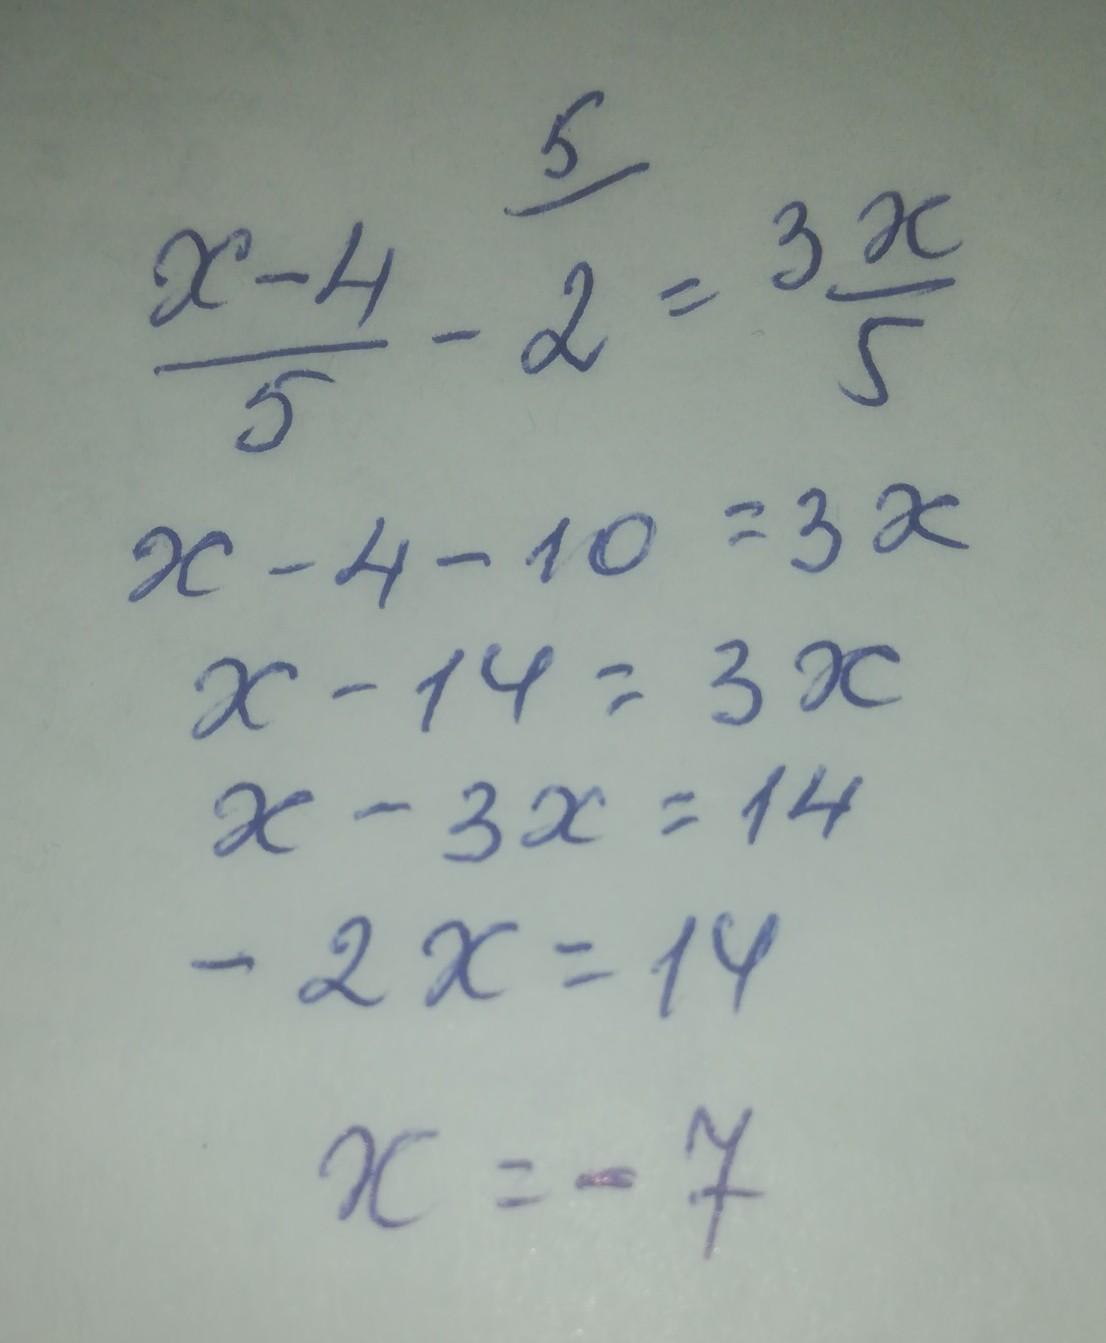 5/
x-4/5 - 2 = 3 x/5
x - 4 - 10 = 3x
x - 14 = 3x
x - 3x = 14
- 2x = 14
x = - 7